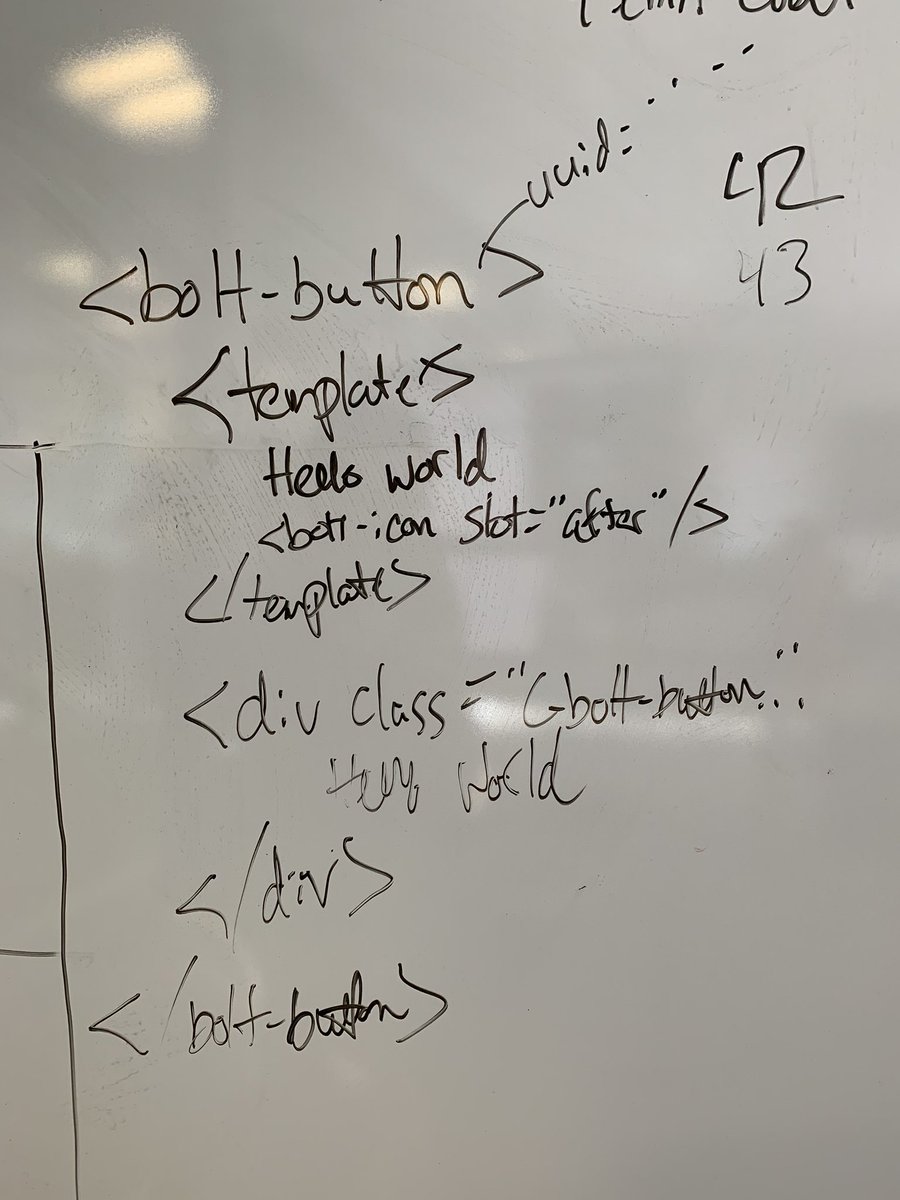 uuid=
42
<bolt-button >
43
<template>
Hello world
<bolt-icon slot="after"/>
</template>
<div class="c-bolt-button..."
Hello World
</div>
</bolt-button>